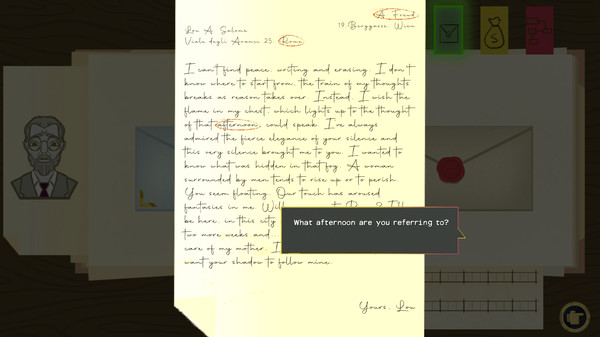 A. Freud
19 Berggasse, Wien
Lou A. Salomé
Viale degli Aranci 25, Rome
I can't find peace, writing and erasing. I don't
know where to start from, the train of my thoughts
breaks as reason takes over. Instead, I wish the
flame in my chest, which lights up to the thought
of that afternoon, could speak. I've always
admired the fierce elegance of your silence and
this very silence brought me to you. I wanted to
know what was hidden in that fog. A woman
surrounded by men tends to rise up or to perish.
You seem floating. Our touch has aroused
fantasies in me.
be here, in this city
two more weeks and...
care of my mother. I
want your shadow to follow mine.
Yours, Lou
What afternoon are you referring to?